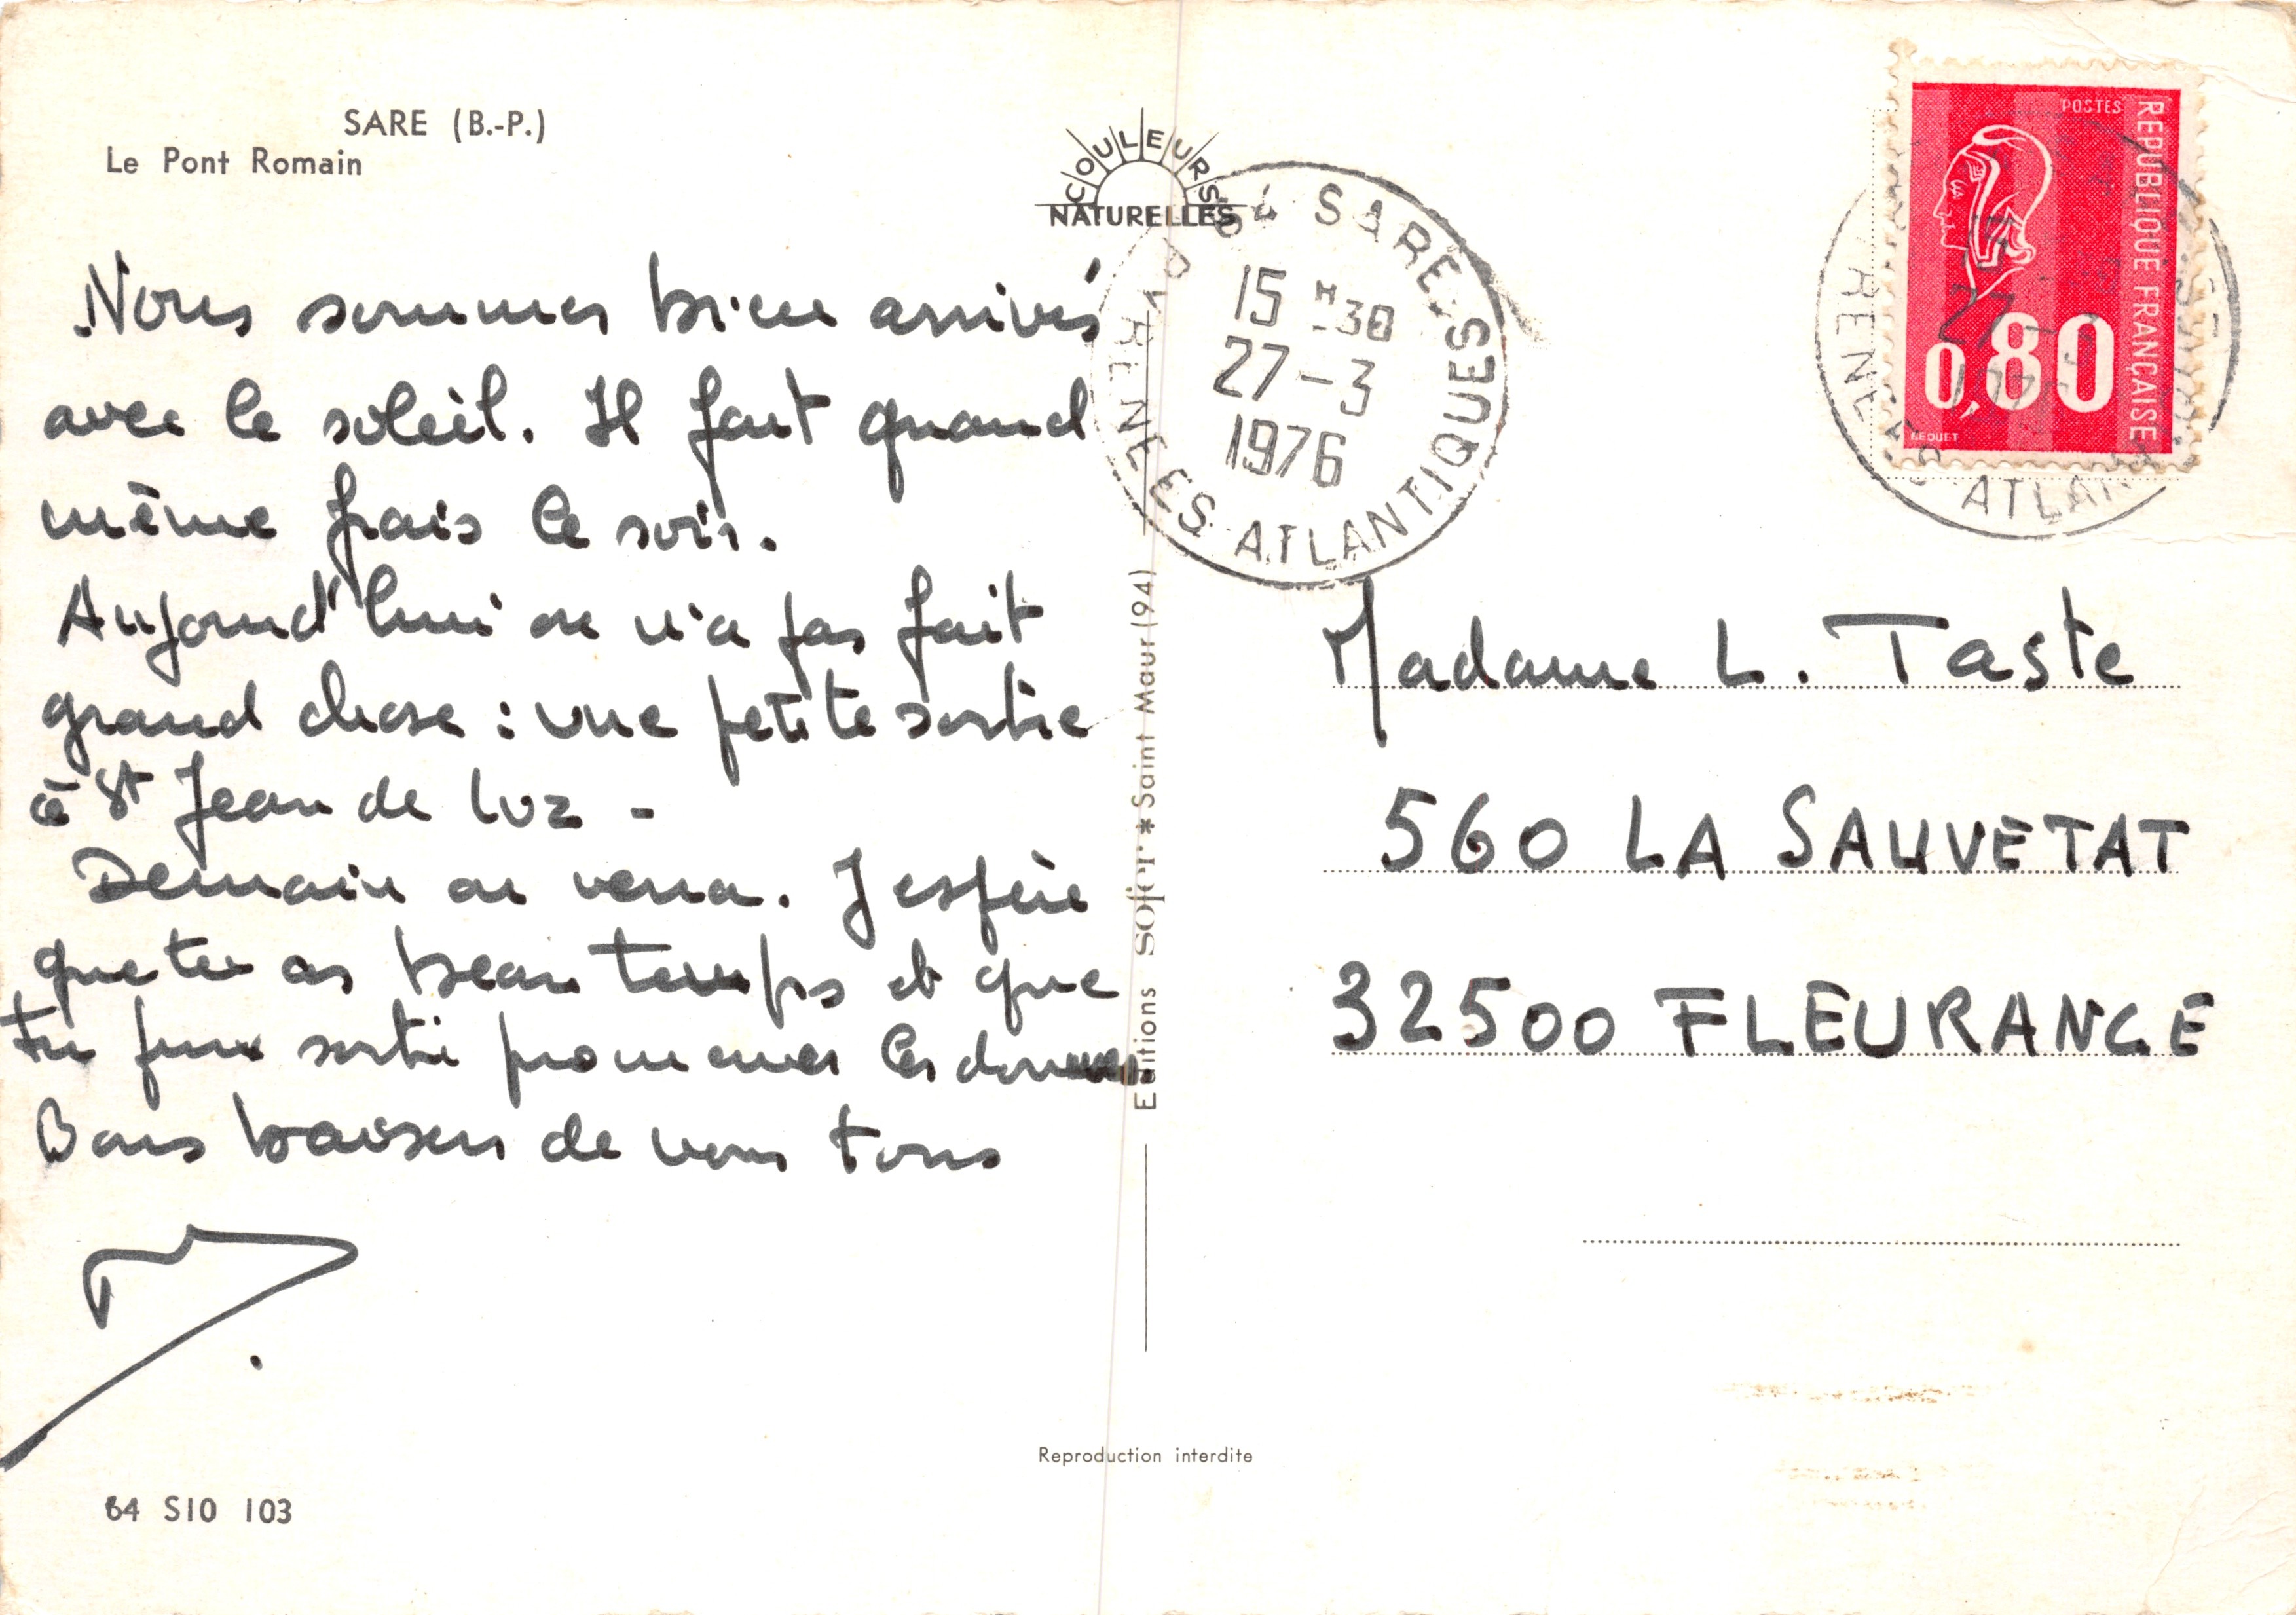 SARE (B.-P.)
Le Pont Romain
COULEURS
NATURELLES
Nous sommes bien arrivés
avec le soleil. Il fait quand
même frais le soir.
Aujourd'hui on n'a pas fait
grand chose : une petite sortie
à St Jean de Luz -
Demain on verra. J espère
que tu as beau temps et que
tu peux sortir promener les
Bons baisers de nous tous
64 S10 103
Editions sofer * Saint Maur (94)
Reproduction interdite
64 SARE
15 H 30
27-3
1976
PYRENEES ATLANTIQUES
POSTES
REPUBLIQUE FRANÇAISE
0,80
BEQUET
27-
ATLAN
Madame L. Taste
560 LA SAUVETAT
32500 FLEURANCE